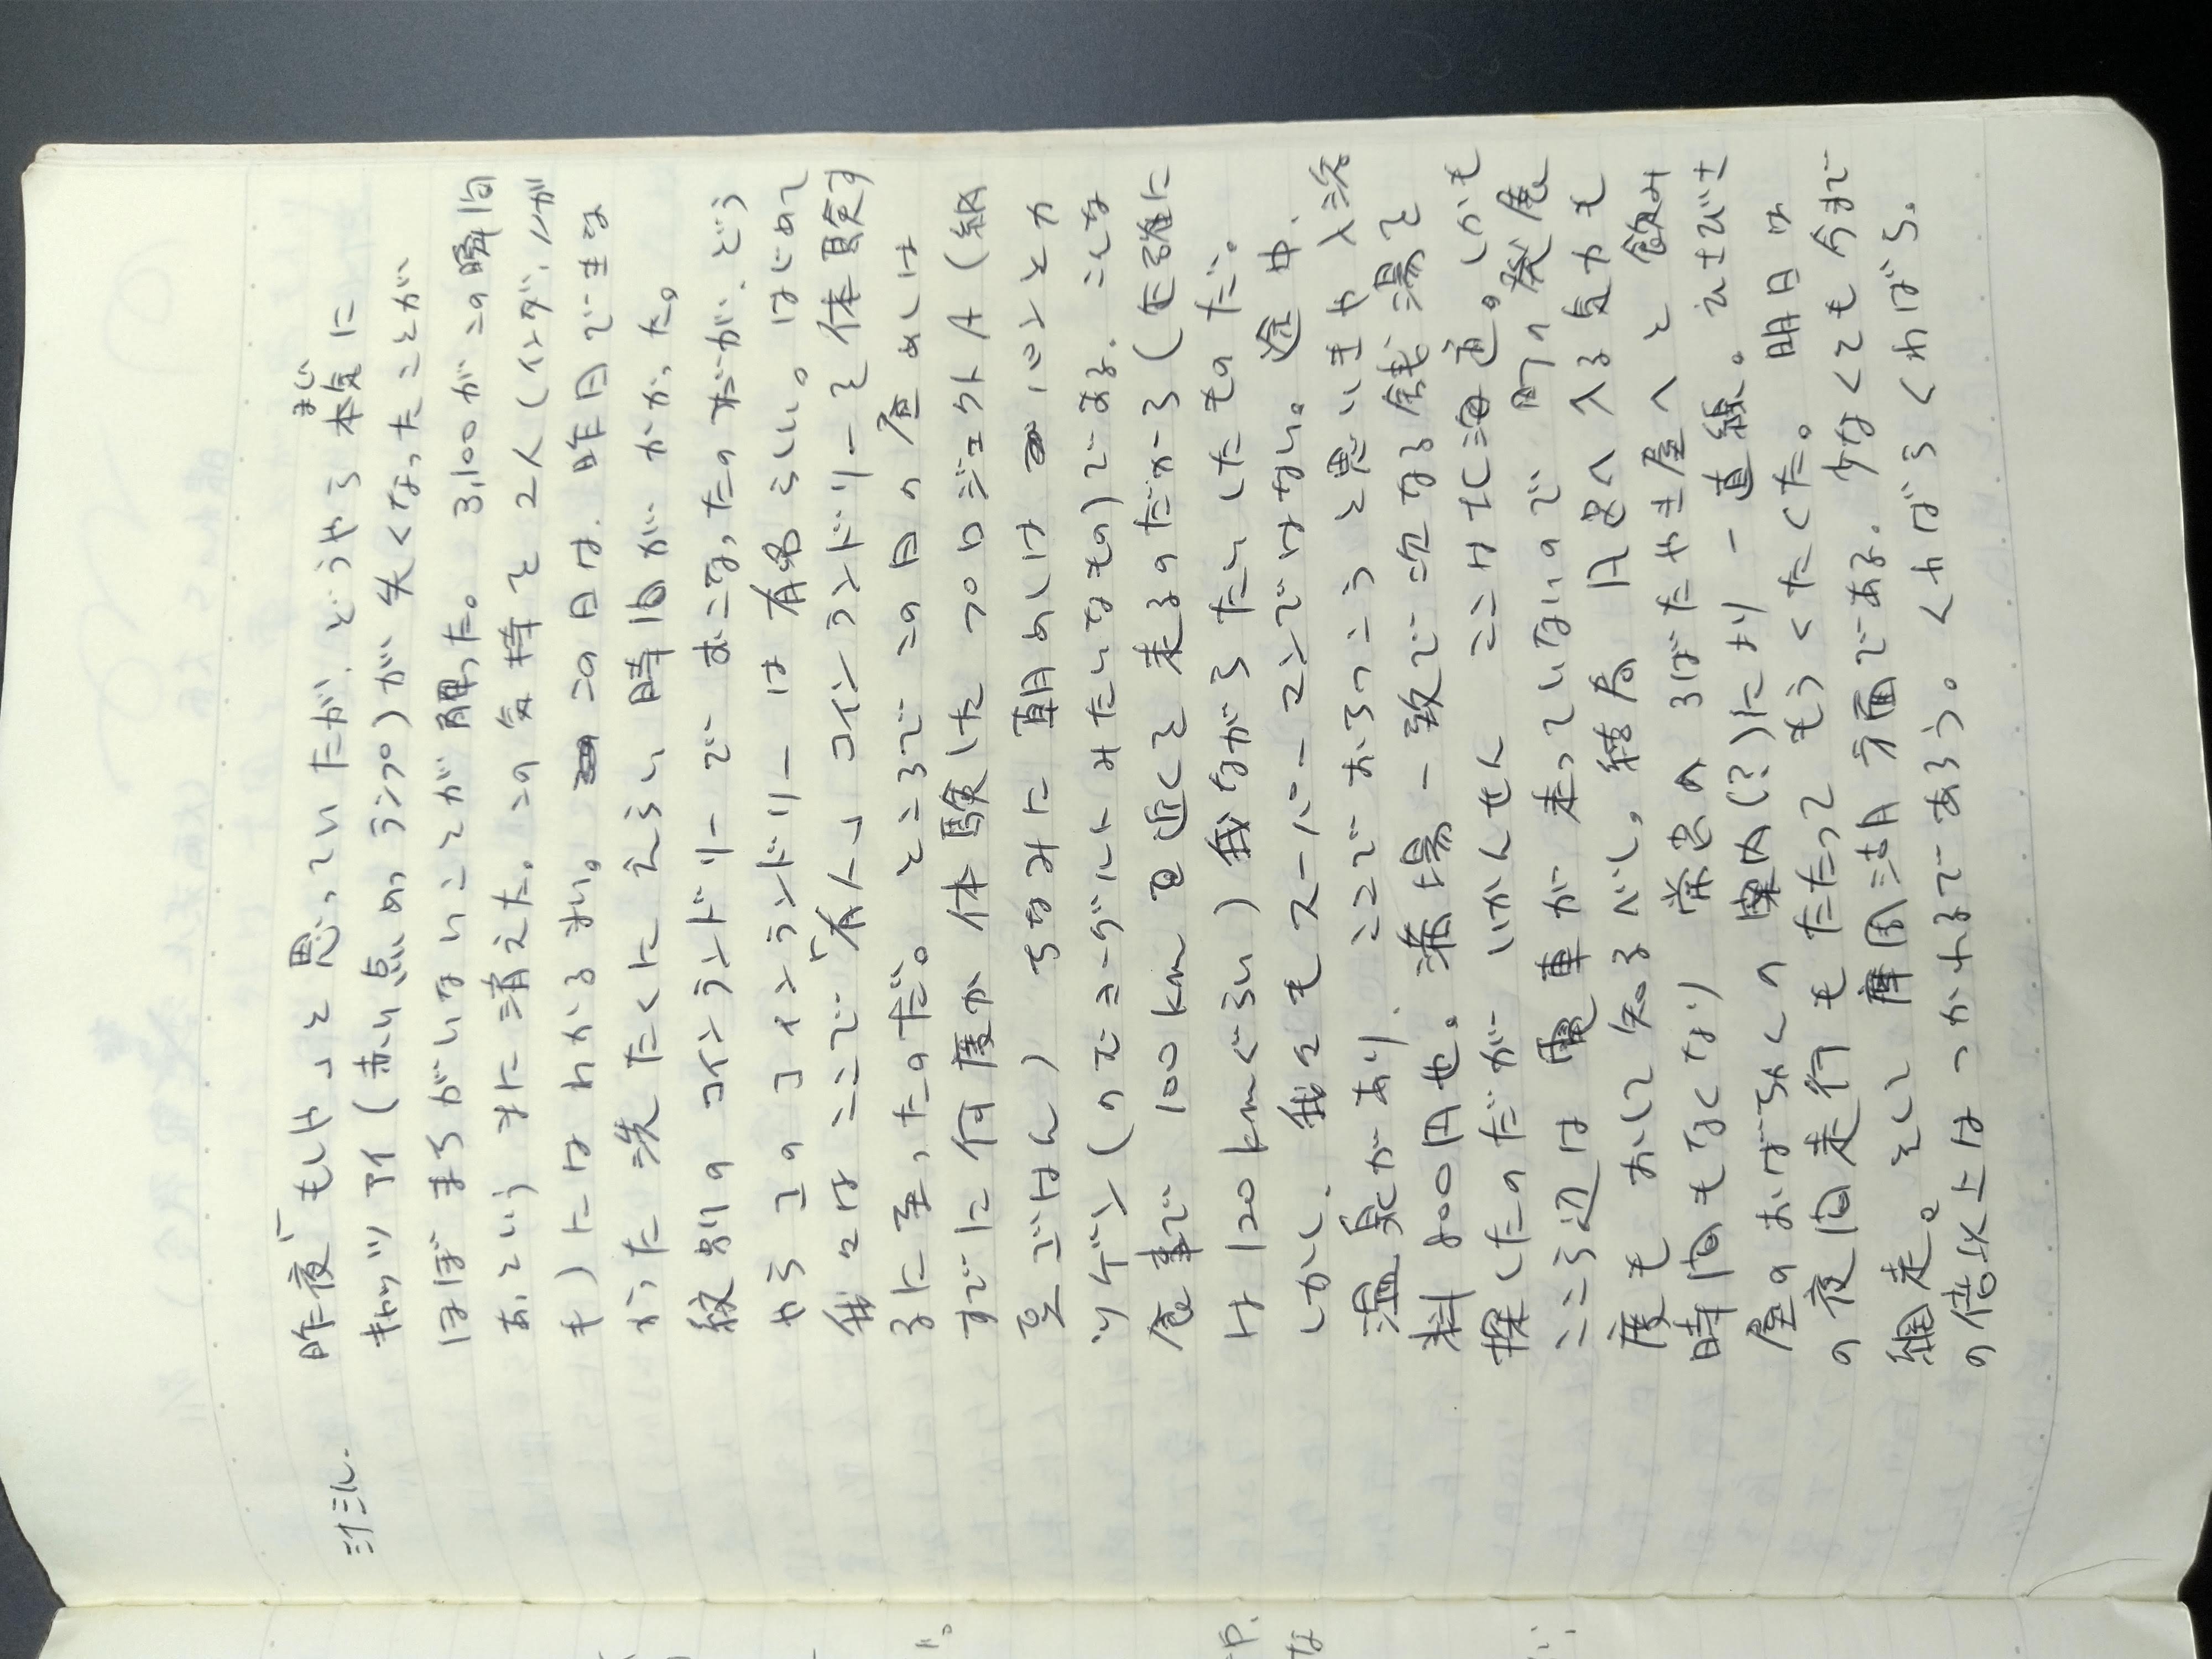 昨夜「もしや」と思っていたが、どうやら本気(まじ)に
キャッツアイ(赤い点めつランプ)が失くなったことが
ほぼまちがいないことが解った。3,100がこの瞬間
あっという まに消えた。この気持を2人(インダ、ノガ
キ)にはわかるまい。この日は、昨日できな
かった洗たくにえらい時間がかかった。
紋別のコインランドリーでおこなったのだが、どう
やらこのコインランドリーは有名らしい。はじめて
我々はここで「有人」コインランドリーを体験す
るに至ったのだ。ところでこの日の昼めしは
すでに何度か体験したプロジェクトA(納
豆ごはん)ちなみに朝めしはパンとカ
ツゲン(のむヨーグルトみたいなもの)である。こんな
食事で100km近くを走るのだから(正確に
は120kmぐらい)我ながらたいしたものだ。
しかし、我々もスーパーマンではない。途中、
温泉があり、ここでおふろっこうと思いきや入浴
料800円也。満場一致で次なる銭湯を
探したのだが いかんせん ここは北海道。しかも
ここら辺は電車が走っていないので 町の発展
度もおして知るべし。結局 风呂へ入る気力も
時間もなくなり 常呂のろばたやき屋へと飲み
屋のおばちゃんの案内(?)により一直線。えさびさ
の夜間走行もたたってもうくたくた。明日は
網走。そして摩周方面である。少なくとも今まで
の倍以上はつかれるであろう。くわばらくわばら。